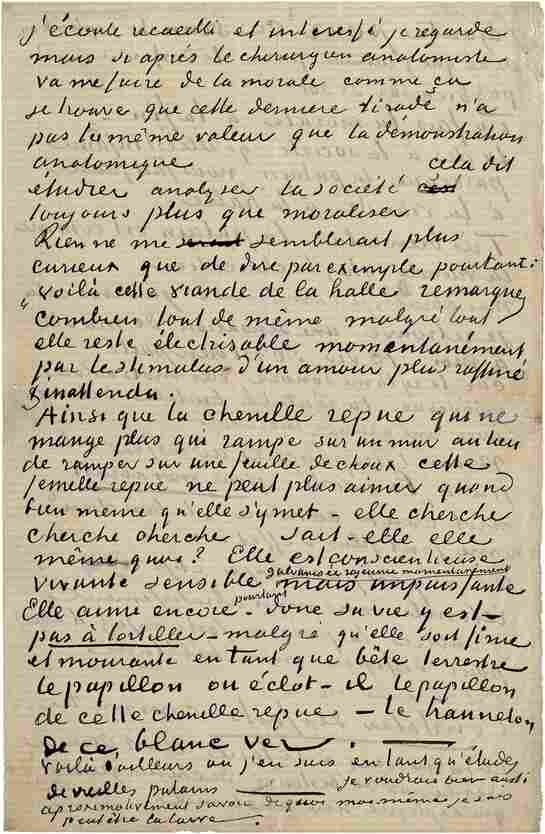 j'écoute recueilli et interessé je regarde
mais si après le chirurgien anatomiste
va me faire de la morale comme ça
je trouve que cette dernière tirade n'a
pas la même valeur que la démonstration
anatomique cela dit
étudier analyser la société c'est
toujours plus que moraliser
Rien ne me serait semblerait plus
curieux que de dire par exemple pourtant:
"voilà cette viande de la halle remarquez
combien tout de même malgré tout
elle reste électrisable momentanément
par le stimulus d'un amour plus raffiné
& inattendu.
Ainsi que la chenille repue qui ne
mange plus qui rampe sur un mur au lieu
de ramper sur une feuille de choux cette
femelle repue ne peut plus aimer quand
bien meme qu'elle s'y met – elle cherche
cherche cherche sait-elle elle
même quoi? Elle est conscientieuse
vivante sensible galvanisée rajeunie momentanement mais impuissante
Elle aime encore – pourtant donc sa vie y est –
pas à tortiller – malgré qu'elle soit finie
et mourante en tant que bête terrestre
le papillon ou éclot – il le papillon
de cette chenille repue – le hanneton
de ce blanc ver.
voilà d'ailleurs ou j'en suis en tant qu'études
de vieilles putains je voudrais bien aussi
approximativement savoir de quoi moi même je suis
peutêtre la larve.